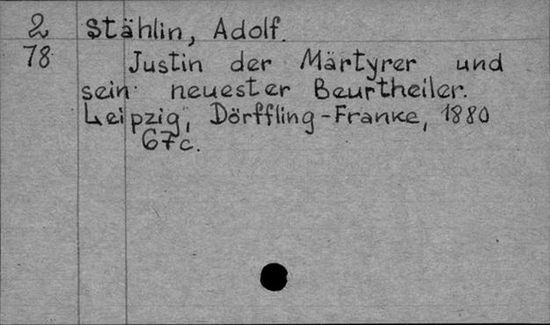 2 Stählin, Adolf.
78 Justin der Märtyrer und
sein neuester Beurtheiler.
Leipzig, Dörffling-Franke, 1880
67c.